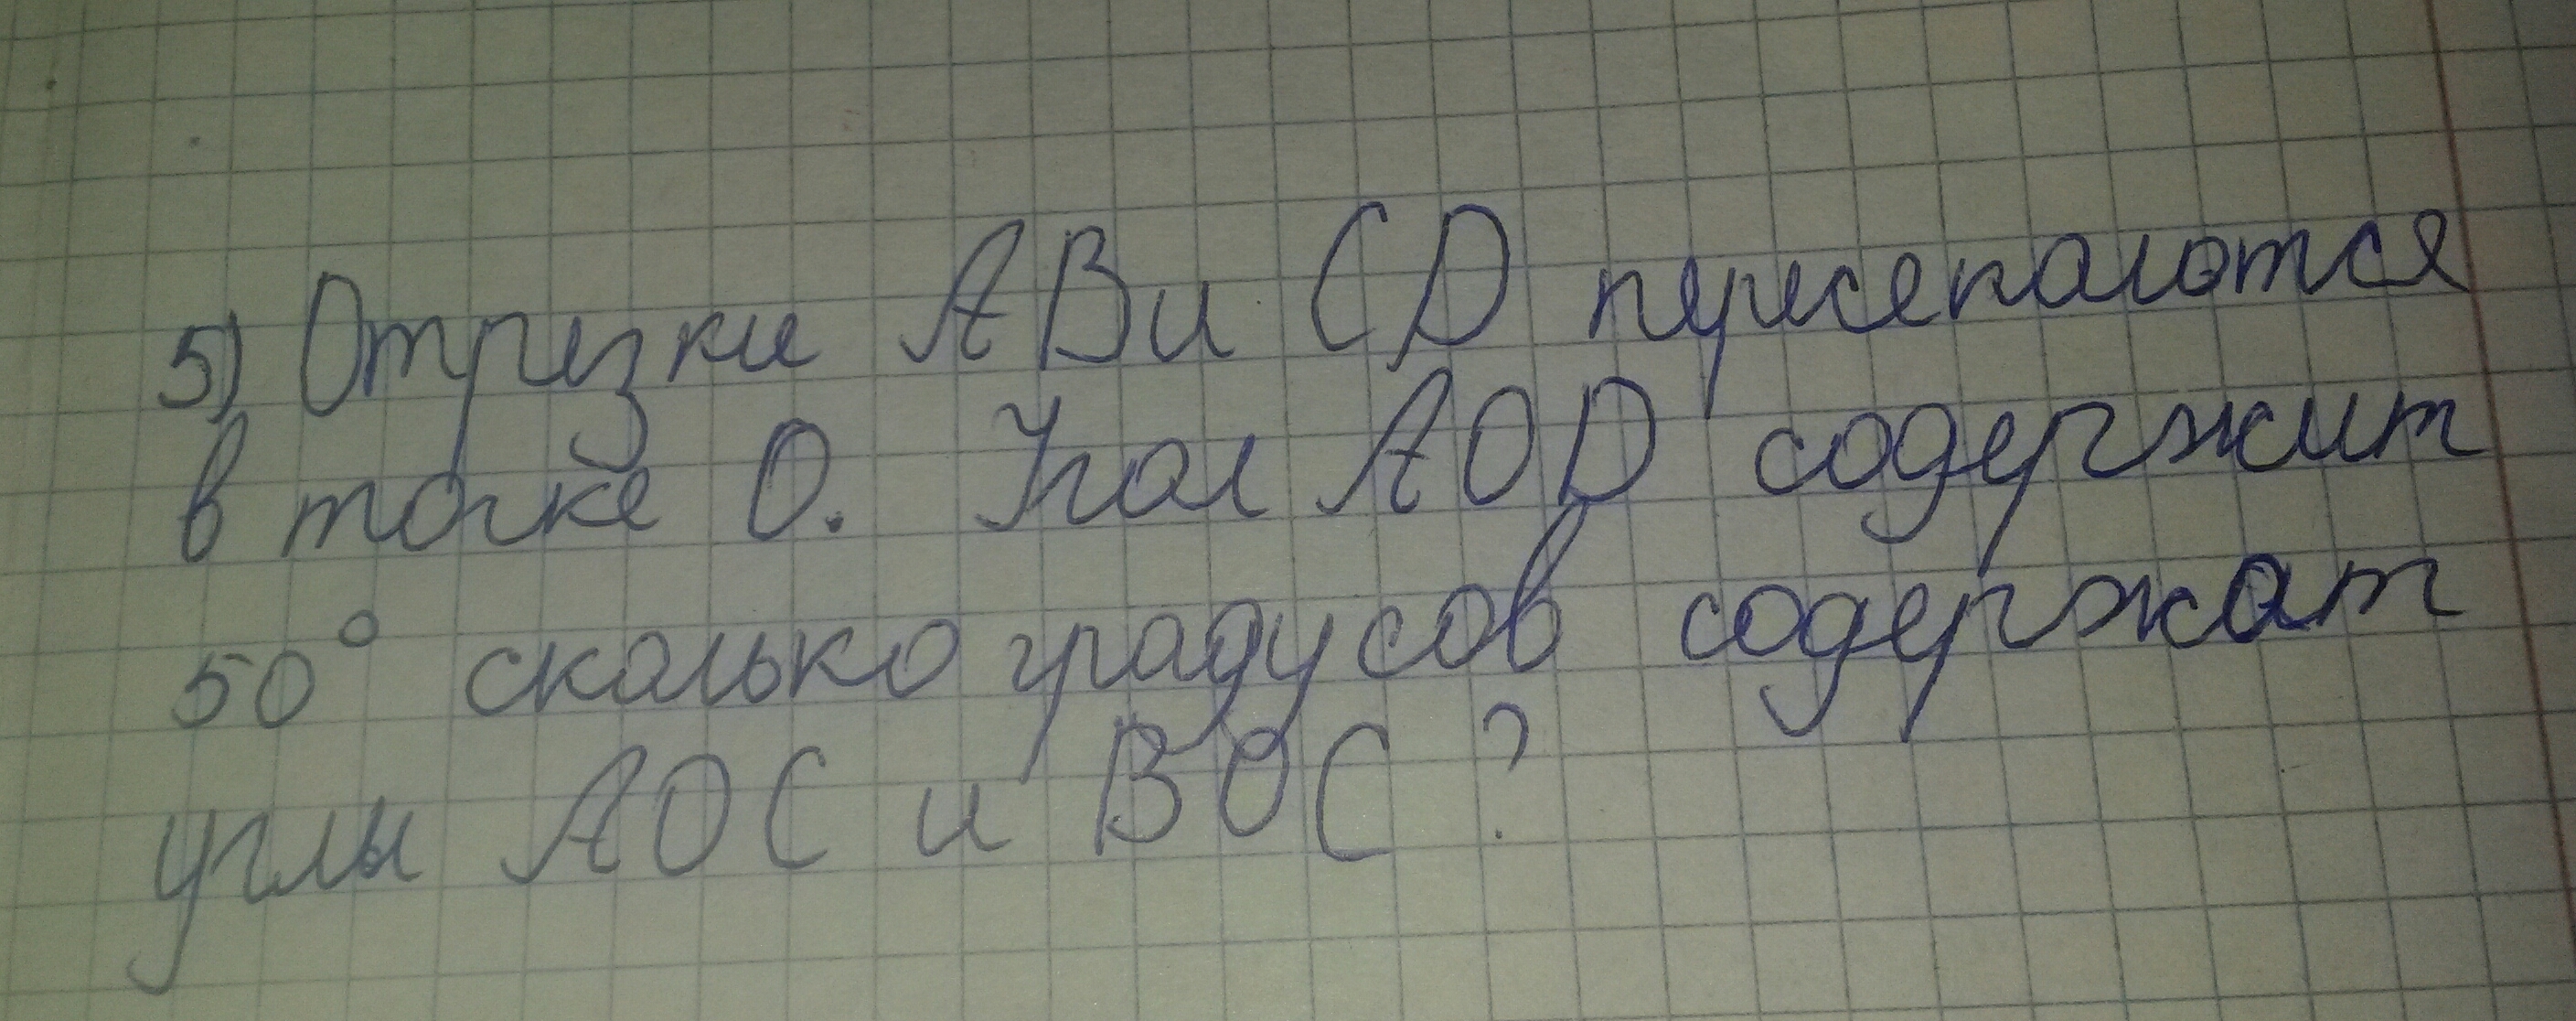 5) Отрезки AB и CD пересекаются
в точке O. Угол AOD содержит
50° сколько градусов содержат
углы AOC и BOC?